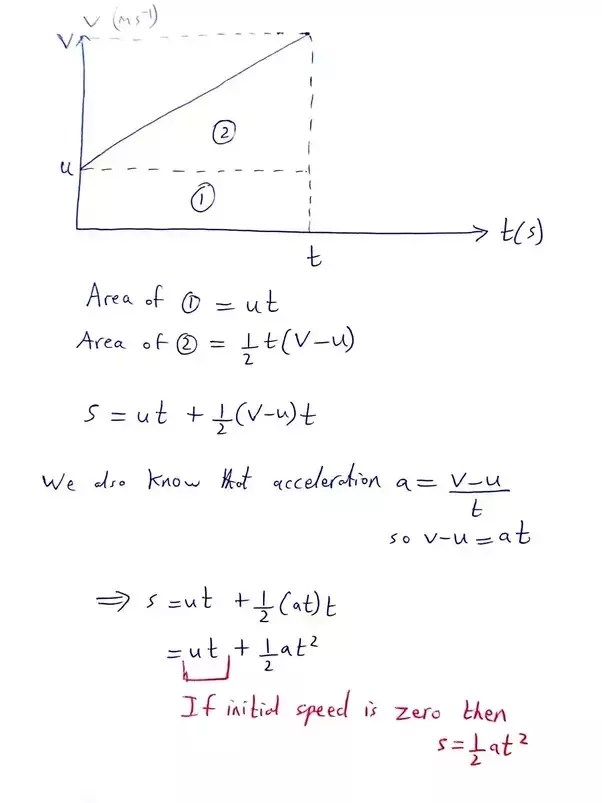 V (ms⁻¹)
V
②
u
①
t(s)
t
Area of ① = ut
Area of ② = 1/2 t(V-u)
S = ut + 1/2 (V-u)t
We also know that acceleration a = V-u/t
so v-u = at
⇒ s = ut + 1/2 (at)t
= ut + 1/2 at²
If initial speed is zero then
s = 1/2 at²